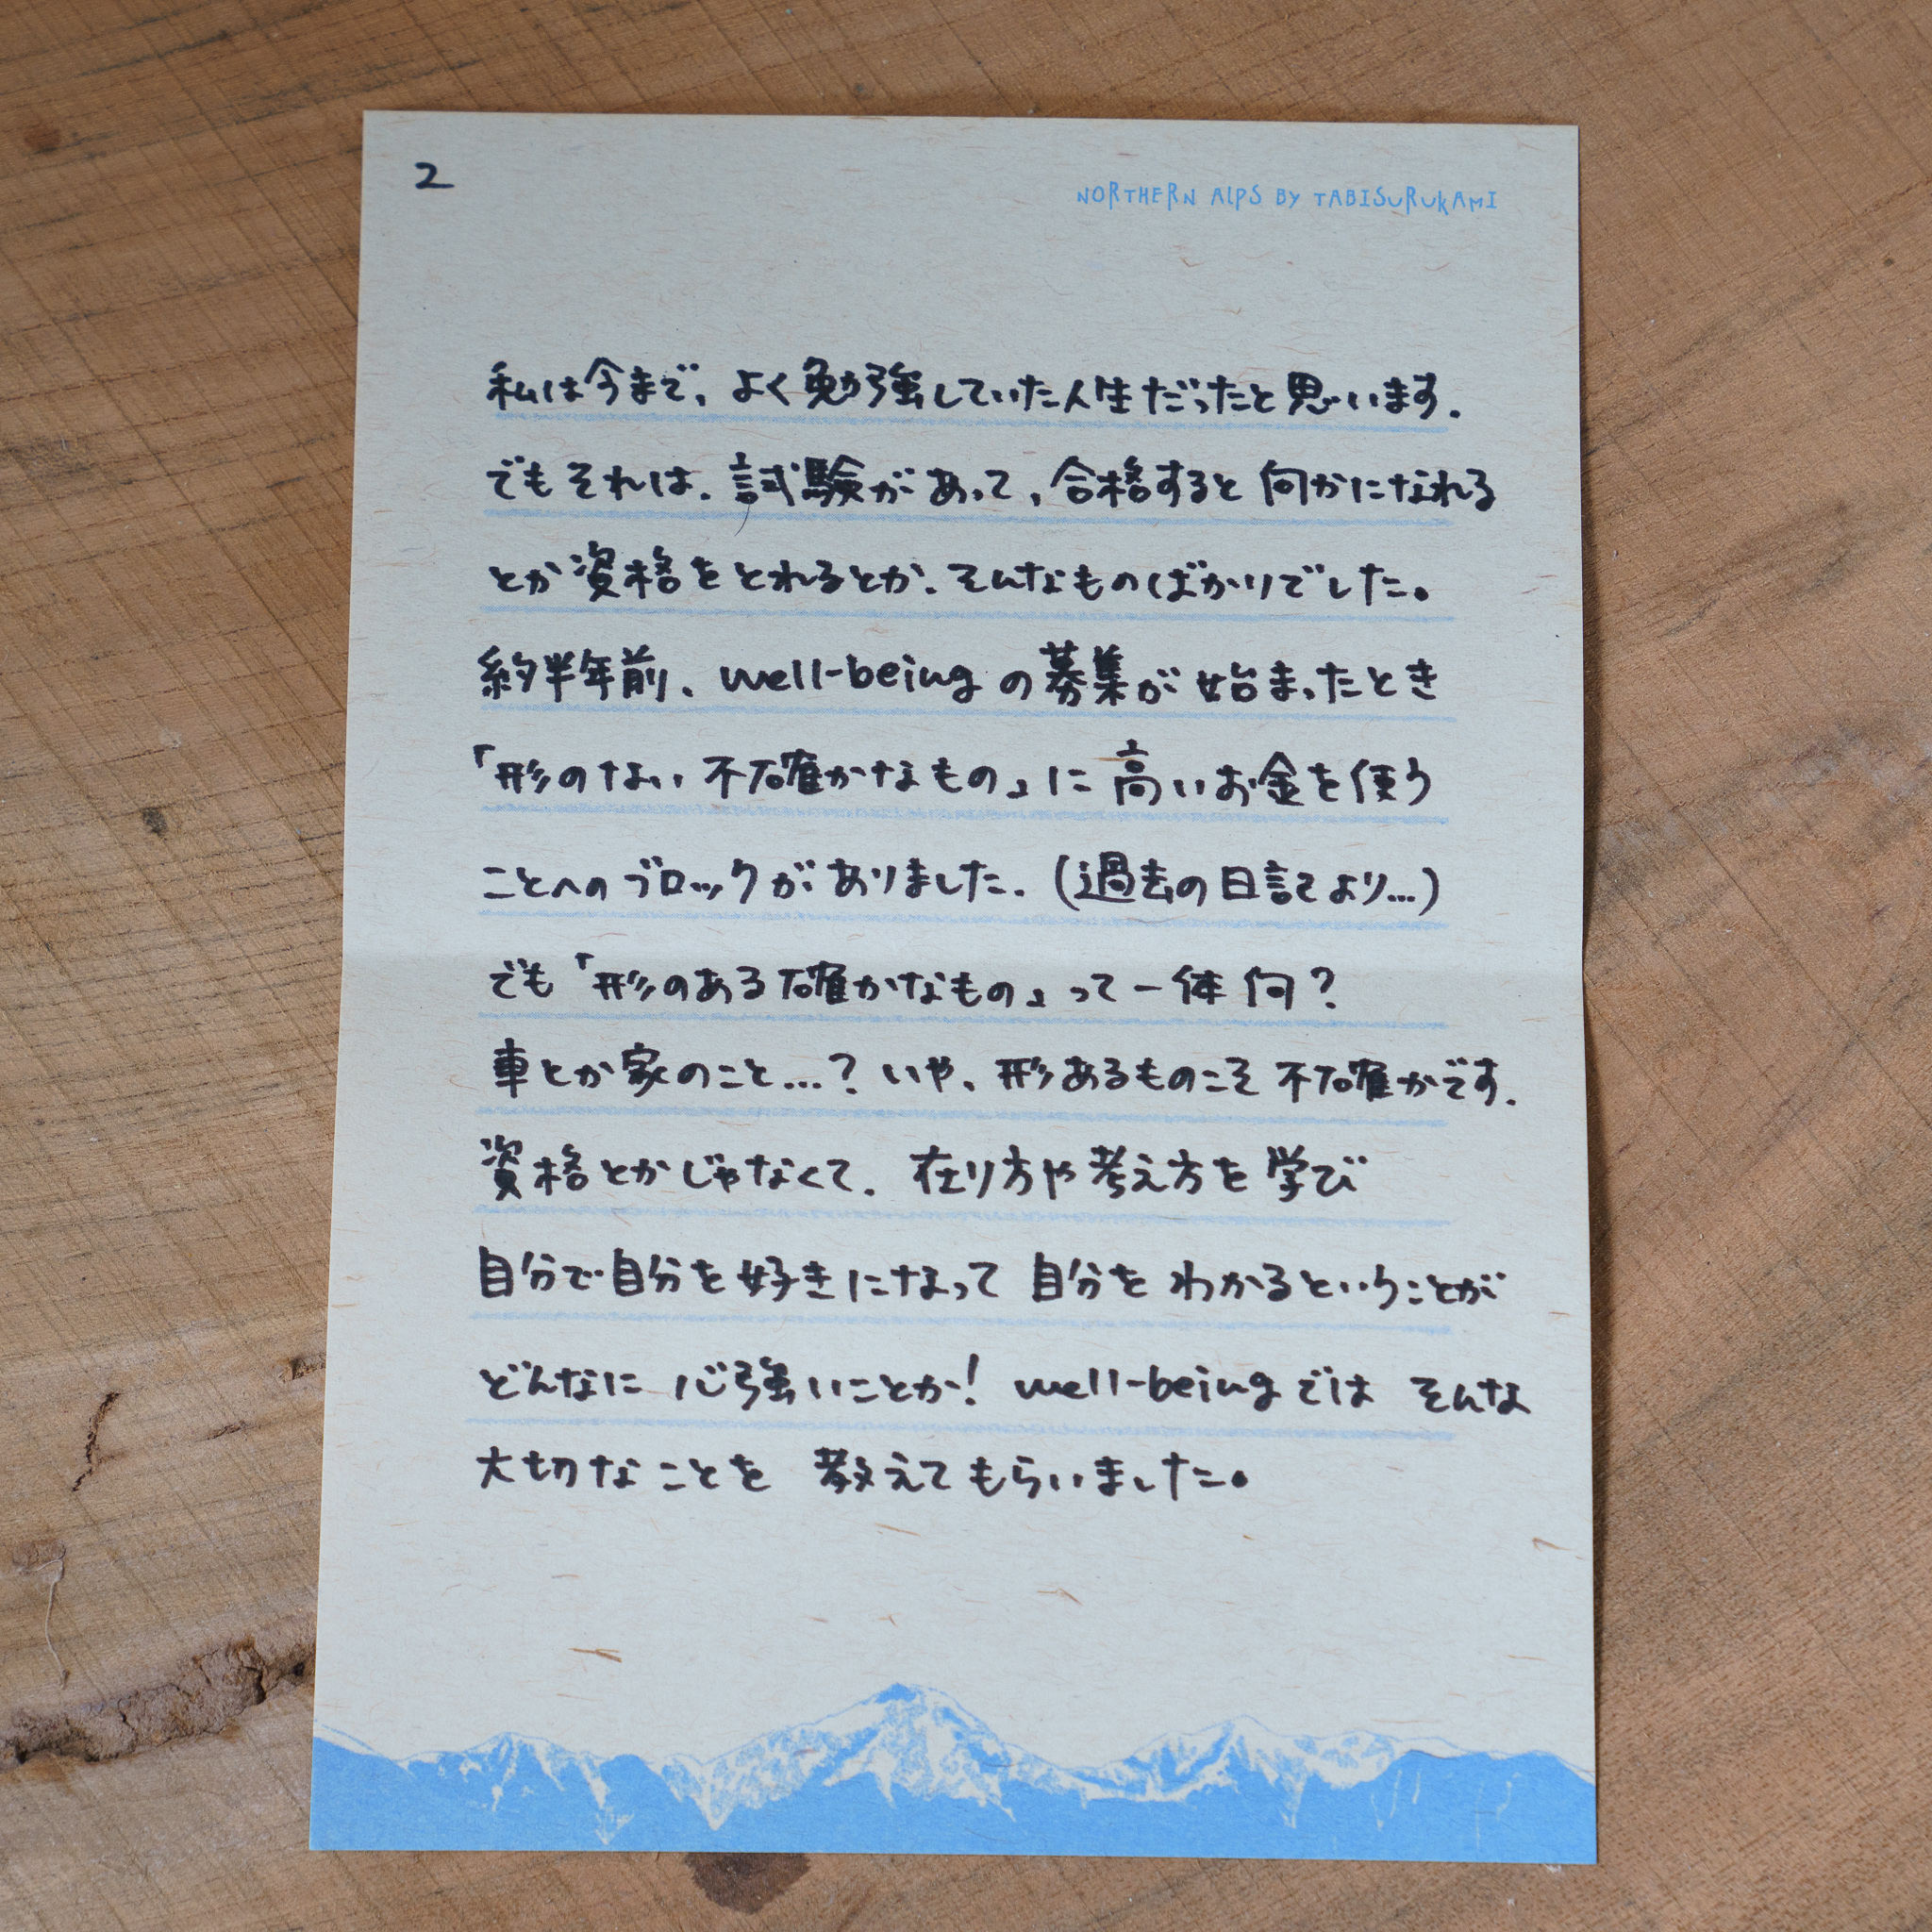 2
NORTHERN ALPS BY TABISURUKAMI
私は今まで、よく勉強していた人生だったと思います.
でもそれは、試験があって、合格すると何かになれる
とか資格をとれるとか、そんなものばかりでした。
約半年前、well-beingの募集が始まったとき
「形のない不確かなもの」に高いお金を使う
ことへのブロックがありました.(過去の日記より...)
でも「形のある確かなもの」って一体何?
車とか家のこと...?いや、形あるものこそ不確かです.
資格とかじゃなくて、在り方や考え方を学び
自分で自分を好きになって自分をわかるということが
どんなに心強いことか!well-beingではそんな
大切なことを教えてもらいました。